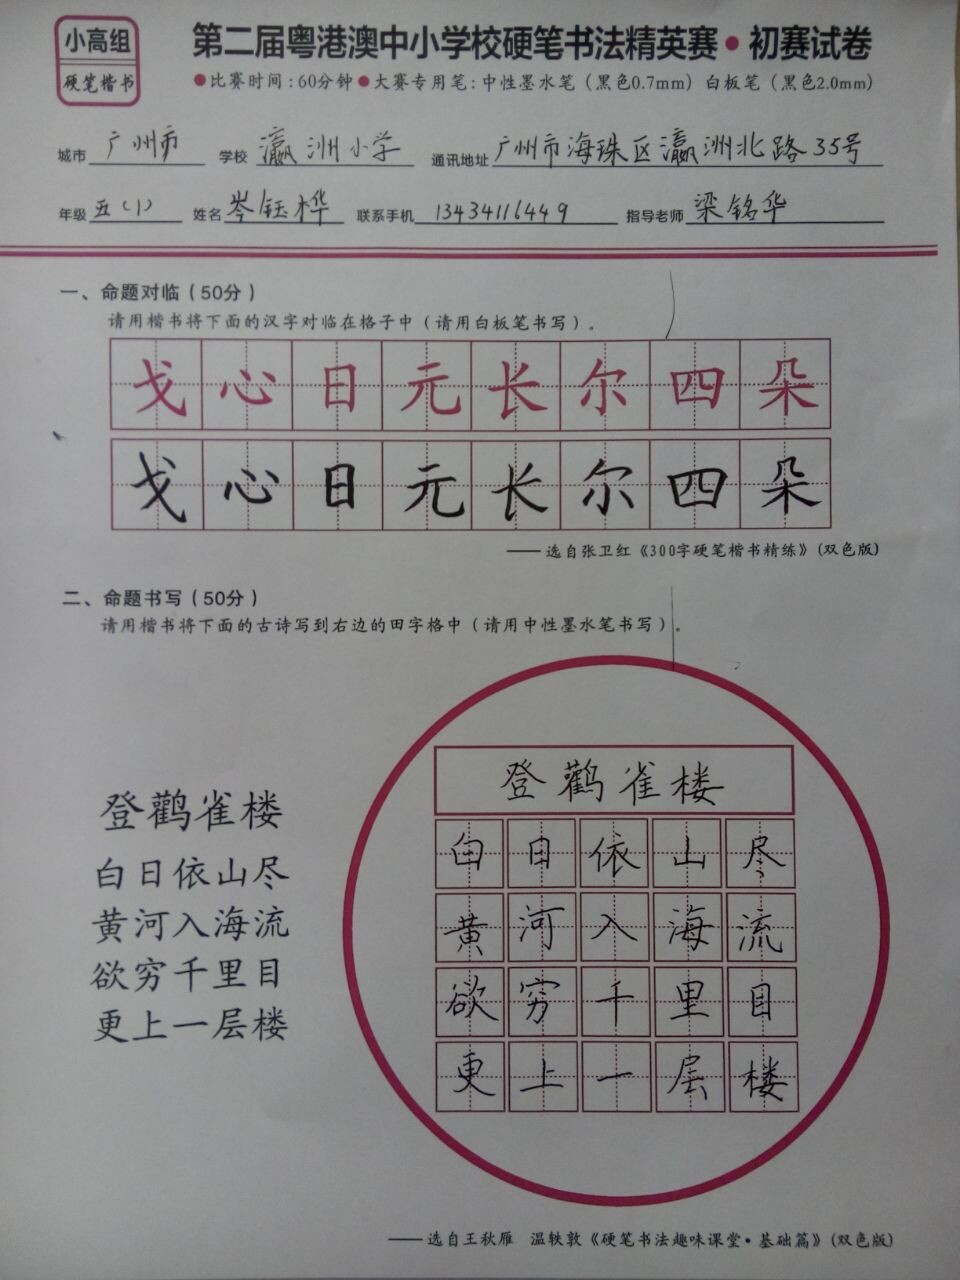 小高组
硬笔楷书
第二届粤港澳中小学校硬笔书法精英赛•初赛试卷
●比赛时间:60分钟●大赛专用笔:中性墨水笔(黑色0.7mm) 白板笔(黑色2.0mm)
城市 广州市 学校 瀛洲小学 通讯地址 广州市海珠区瀛洲北路35号
年级 五(1) 姓名 岑钰桦 联系手机 13434116449 指导老师 梁铭华
一、命题对临(50分)
请用楷书将下面的汉字对临在格子中(请用白板笔书写)。
戈心日元长尔四朵
戈心日元长尔四朵
——选自张卫红《300字硬笔楷书精练》(双色版)
二、命题书写(50分)
请用楷书将下面的古诗写到右边的田字格中(请用中性墨水笔书写)。
登鹳雀楼
白日依山尽
黄河入海流
欲穷千里目
更上一层楼
登鹳雀楼
白日依山尽
黄河入海流
欲穷千里目
更上一层楼
——选自王秋雁 温轶敦《硬笔书法趣味课堂·基础篇》(双色版)